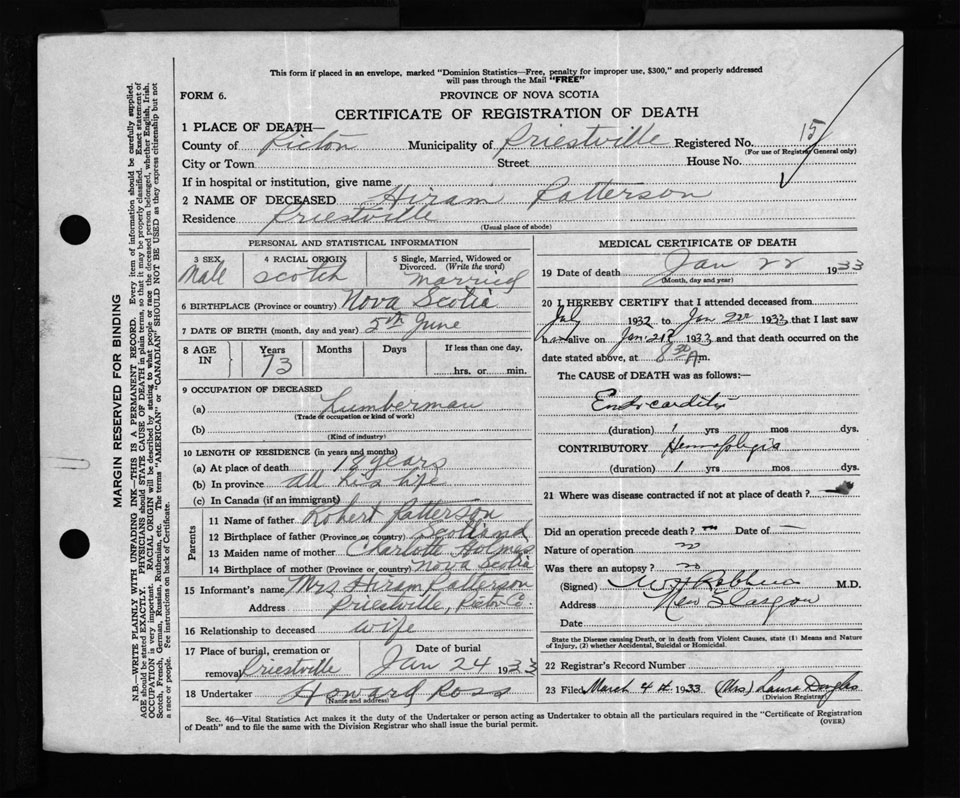 This form if placed in an envelope, marked "Dominion Statistics—Free, penalty for improper use, $300," and properly addressed
will pass through the Mail "FREE"
FORM 6.
PROVINCE OF NOVA SCOTIA
CERTIFICATE OF REGISTRATION OF DEATH
1 PLACE OF DEATH—
County of Pictou Municipality of Priestville Registered No. 15
(For use of Registrar General only)
City or Town Street House No.
If in hospital or institution, give name
2 NAME OF DECEASED Hiram Patterson
Residence Priestville
(Usual place of abode)
PERSONAL AND STATISTICAL INFORMATION
3 SEX 4 RACIAL ORIGIN 5 Single, Married, Widowed or
Divorced. (Write the word)
Male Scotch Married
6 BIRTHPLACE (Province or country) Nova Scotia
7 DATE OF BIRTH (month, day and year) 5th June
8 AGE IN Years Months Days If less than one day,
73 hrs. or min.
9 OCCUPATION OF DECEASED
(a) Lumberman
(Trade or occupation or kind of work)
(b)
(Kind of industry)
10 LENGTH OF RESIDENCE (in years and months)
(a) At place of death 13 years
(b) In province all his life
(c) In Canada (if an immigrant)
Parents
11 Name of father Robert Patterson
12 Birthplace of father (Province or country) Scotland
13 Maiden name of mother Charlotte Holmes
14 Birthplace of mother (Province or country) Nova Scotia
15 Informant's name Mrs Hiram Patterson
Address Priestville, Pictou Co.
16 Relationship to deceased wife
17 Place of burial, cremation or Date of burial
removal Priestville Jan 24 1933
18 Undertaker Howard Ross
(Name and address)
MEDICAL CERTIFICATE OF DEATH
19 Date of death Jan 22 1933
(Month, day and year)
20 I HEREBY CERTIFY that I attended deceased from
July 1932 to Jan 22 1933 that I last saw
him alive on Jan. 21 1933 and that death occurred on the
date stated above, at 8 30 A m.
The CAUSE of DEATH was as follows:—
Endocarditis
(duration) 1 yrs mos dys.
CONTRIBUTORY
(duration) 1 yrs mos dys.
21 Where was disease contracted if not at place of death?
Did an operation precede death? Date of —
Nature of operation no
Was there an autopsy? no
(Signed) M.D.
Address New Glasgow
Date
State the Disease causing Death, or in death from Violent Causes, state (1) Means and Nature
of Injury, (2) whether Accidental, Suicidal or Homicidal.
22 Registrar's Record Number
23 Filed March 4th 1933 (Mrs) Laura Douglas
(Division Registrar)
Sec. 46—Vital Statistics Act makes it the duty of the Undertaker or person acting as Undertaker to obtain all the particulars required in the "Certificate of Registration
of Death" and to file the same with the Division Registrar who shall issue the burial permit.
(OVER)
MARGIN RESERVED FOR BINDING
N.B.—WRITE PLAINLY WITH UNFADING INK—THIS IS A PERMANENT RECORD. Every item of information should be carefully supplied.
AGE should be stated EXACTLY. PHYSICIANS should STATE CAUSE OF DEATH in plain terms, so that it may be properly classified. Exact statement of
OCCUPATION is very important. RACIAL ORIGIN will be described by stating to what people or race the deceased person belonged, whether English, Irish,
Scotch, French, German, Russian, Ruthenian, etc. The terms "AMERICAN" or "CANADIAN" SHOULD NOT BE USED as they express citizenship but not
a race or people. See instructions on back of Certificate.